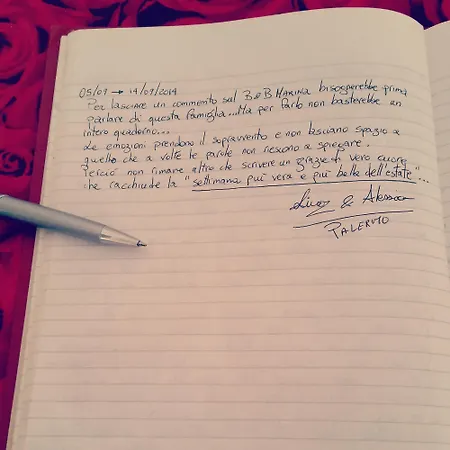 05/07 → 14/07/2014
Per lasciare un commento sul B&B MARINA bisognerebbe prima
parlare di questa famiglia... Ma per farlo non basterebbe un
intero quaderno...
Le emozioni prendono il sopravvento e non lasciano spazio a
quello che a volte le parole non riescono a spiegare.
Perciò non rimane altro che scrivere un grazie di vero cuore
che racchiude la "settimana più vera e più bella dell'estate"...
&
PALERMO